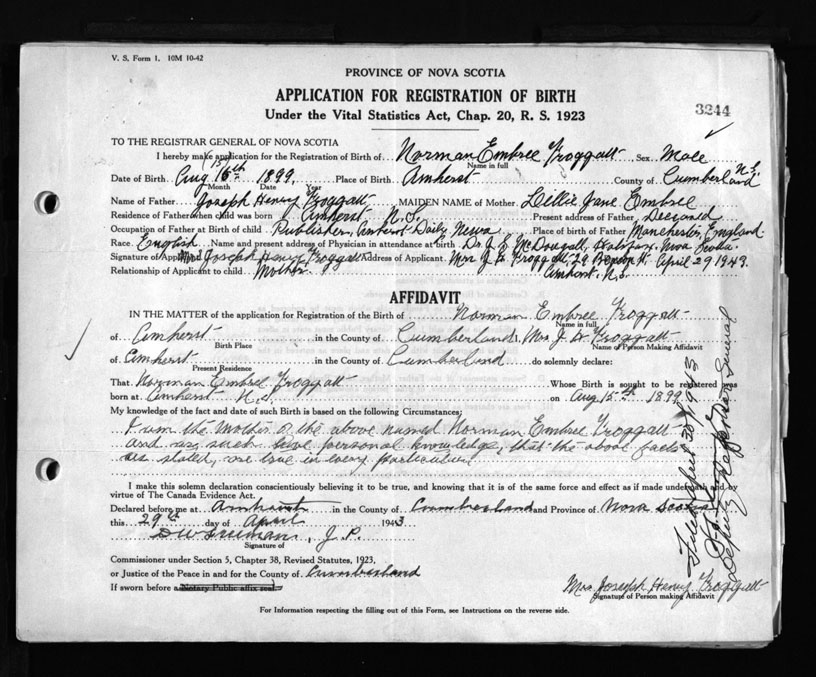 V. S. Form 1. 10M 10-42
PROVINCE OF NOVA SCOTIA
APPLICATION FOR REGISTRATION OF BIRTH
Under the Vital Statistics Act, Chap. 20, R. S. 1923
3244
TO THE REGISTRAR GENERAL OF NOVA SCOTIA
I hereby make application for the Registration of Birth of Norman Embree Froggatt Sex Male
Name in full
Date of Birth Aug 15th 1899 Place of Birth Amherst County of Cumberland N.S.
Month Date Year
Name of Father Joseph Henry Froggatt MAIDEN NAME of Mother Lillie Jane Embree
Residence of Father when child was born Amherst N.S. Present address of Father Deceased
Occupation of Father at Birth of child Publisher, Amherst Daily News Place of birth of Father Manchester, England
Race English Name and present address of Physician in attendance at birth Dr. J. G. McDougall, Halifax, Nova Scotia
Signature of Applicant Mrs Joseph Henry Froggatt Address of Applicant Mrs J H Froggatt 29 April 29 1943
Relationship of Applicant to child Mother Amherst, N.S.
AFFIDAVIT
IN THE MATTER of the application for Registration of the Birth of Norman Embree Froggatt
Name in full
of Amherst in the County of Cumberland, Mrs J H Froggatt
Birth Place Name of Person Making Affidavit
of Amherst in the County of Cumberland do solemnly declare:
Present Residence
That Norman Embree Froggatt Whose Birth is sought to be registered was
born at Amherst N.S. on Aug 15th 1899
My knowledge of the fact and date of such Birth is based on the following Circumstances:
I am the Mother of the above named Norman Embree Froggatt
and as such have personal knowledge, that the above facts
as stated, are true in every particular.
I make this solemn declaration conscientiously believing it to be true, and knowing that it is of the same force and effect as if made under oath and by
virtue of The Canada Evidence Act.
Declared before me at Amherst in the County of Cumberland and Province of Nova Scotia
this 29th day of April 1943
J. P.
Signature of
Commissioner under Section 5, Chapter 38, Revised Statutes, 1923,
or Justice of the Peace in and for the County of Cumberland
If sworn before a Notary Public affix seal
Mrs Joseph Henry Froggatt
Signature of Person making Affidavit
For Information respecting the filling out of this Form, see Instructions on the reverse side.
Filed April 30 1943
Deputy Registrar General